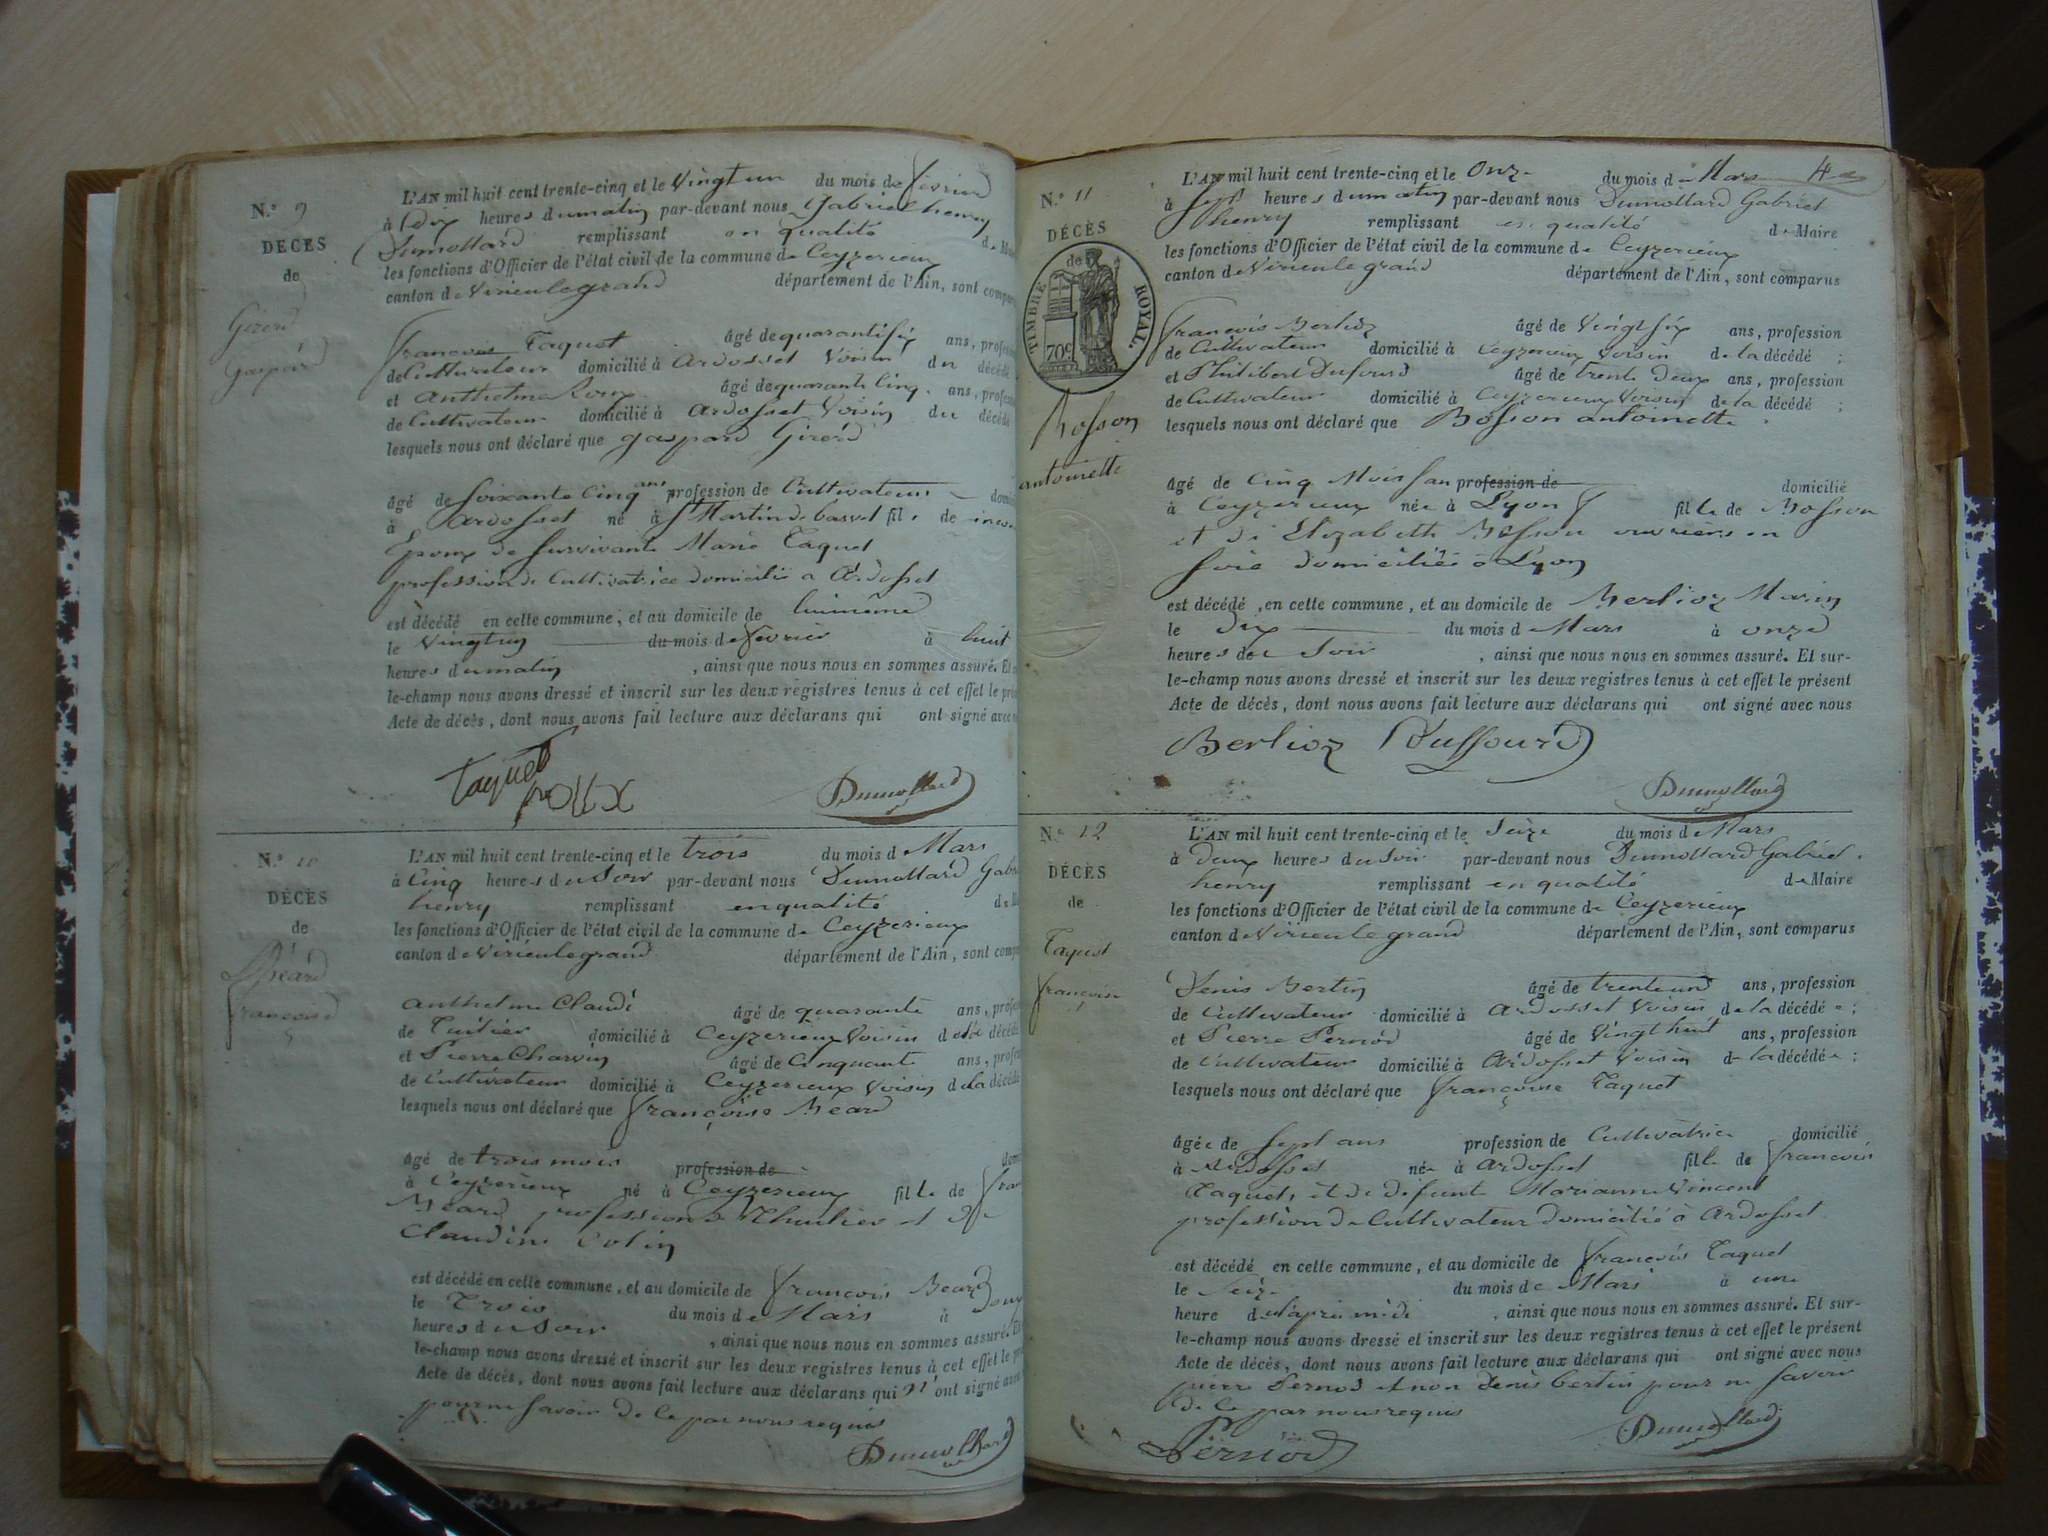 N.° 9
DÉCES
de
Girerd
gaspard
L'AN mil huit cent trente-cinq et le Vingt un du mois de fevrier
à dix heures du matin par-devant nous Gabriel henry
Dumollard remplissant en qualité de
les fonctions d'Officier de l'état civil de la commune de Ceyzerieux
canton de Virieulegrand département de l'Ain, sont
francois Taquet âgé de quarantesix ans,
de Cultivateur domicilié à Ardosset Voisin du décédé
et Anthelme Roux âgé de quarante cinq ans,
de Cultivateur domicilié à Ardosset Voisin du décédé
lesquels nous ont déclaré que gaspard Girerd
âgé de soixante cinq ans profession de Cultivateur
à Ardosset né à St Martin de bavel fils de
Epoux de survivante Marie Taquet
profession de Cultivatrice domicilié a Ardosset
est décédé en cette commune, et au domicile de luimême
le Vingtun du mois de fevrier à huit
heures du matin, ainsi que nous nous en sommes assuré. Et
le-champ nous avons dressé et inscrit sur les deux registres tenus à cet effet le
Acte de décès, dont nous avons fait lecture aux déclarans qui ont signé avec
Taquet
roux Dumollard
N.° 10
DÉCÈS
de
Béard
françoise
L'AN mil huit cent trente-cinq et le trois du mois d Mars
à Cinq heures du Soir par-devant nous Dumollard
henry remplissant en qualité
les fonctions d'Officier de l'état civil de la commune de Ceyzerieux
canton de Virieulegrand département de l'Ain, sont
Anthelme Claudi âgé de quarante ans,
de Tuilier domicilié à Ceyzerieux Voisin de la décédé
et Pierre Charvin âgé de Cinquante ans,
de Cultivateur domicilié à Ceyzerieux Voisin de la décédé
lesquels nous ont déclaré que françoise Beard
âgé de trois mois profession de
à Ceyzerieux né à Ceyzerieux fille de
Béard profession de Thuilier et de
Claudine Colin
est décédé en cette commune, et au domicile de francois Beard
le Trois du mois de Mars à
heures du Soir, ainsi que nous nous en sommes assuré.
le-champ nous avons dressé et inscrit sur les deux registres tenus à cet effet le
Acte de décès, dont nous avons fait lecture aux déclarans qui n'ont signé
pour ne savoir de ce par nous requis
Dumollard
N.° 11
DÉCÈS
de
TIMBRE ROYAL.
70c
Bosson
antoinette
L'AN mil huit cent trente-cinq et le Onze du mois de Mars 4
à sept heures du matin par-devant nous Dumollard Gabriel
henry remplissant en qualité de Maire
les fonctions d'Officier de l'état civil de la commune de Ceyzerieux
canton de Virieulegrand département de l'Ain, sont comparus
francois Berlioz âgé de Vingtsix ans, profession
de Cultivateur domicilié à Ceyzerieux Voisin de la décédé ;
et Philibert Dufourd âgé de trente deux ans, profession
de Cultivateur domicilié à Ceyzerieux Voisin de la décédé ;
lesquels nous ont déclaré que Bosson antoinette
âgé de Cinq Mois profession de domicilié
à Ceyzerieux née à Lyon fille de Bosson
et de Elizabeth Besson ouvriers en
soie domiciliés à Lyon
est décédé, en cette commune, et au domicile de Berlioz Marin
le dix du mois d Mars à onze
heures de Soir, ainsi que nous nous en sommes assuré. Et sur-
le-champ nous avons dressé et inscrit sur les deux registres tenus à cet effet le présent
Acte de décès, dont nous avons fait lecture aux déclarans qui ont signé avec nous
Berlioz Duffourd
Dumollard
N.° 12
DÉCÈS
de
Taquet
françoise
L'AN mil huit cent trente-cinq et le Seize du mois d Mars
à deux heures du Soir par-devant nous Dumollard Gabriel
henry remplissant en qualité de Maire
les fonctions d'Officier de l'état civil de la commune de Ceyzerieux
canton de Virieu le grand département de l'Ain, sont comparus
Denis Bertin âgé de trenteun ans, profession
de Cultivateur domicilié à Ardosset Voisin de la décédée ;
et Pierre Pernod âgé de Vingthuit ans, profession
de Cultivateur domicilié à Ardosset Voisin de la décédée ;
lesquels nous ont déclaré que françoise Taquet
âgée de sept ans profession de Cultivatrice domicilié
à Ardosset née à Ardosset fille de francois
Taquet, et de defunte Marianne Vincent
profession de Cultivateur domicilié à Ardosset
est décédé en cette commune, et au domicile de francois Taquet
le Seize du mois de Mars à une
heure de l'après midi, ainsi que nous nous en sommes assuré. Et sur-
le-champ nous avons dressé et inscrit sur les deux registres tenus à cet effet le présent
Acte de décès, dont nous avons fait lecture aux déclarans qui ont signé avec nous
pierre Pernod et non denis bertin pour ne savoir
de ce par nous requis
Pernod Dumollard